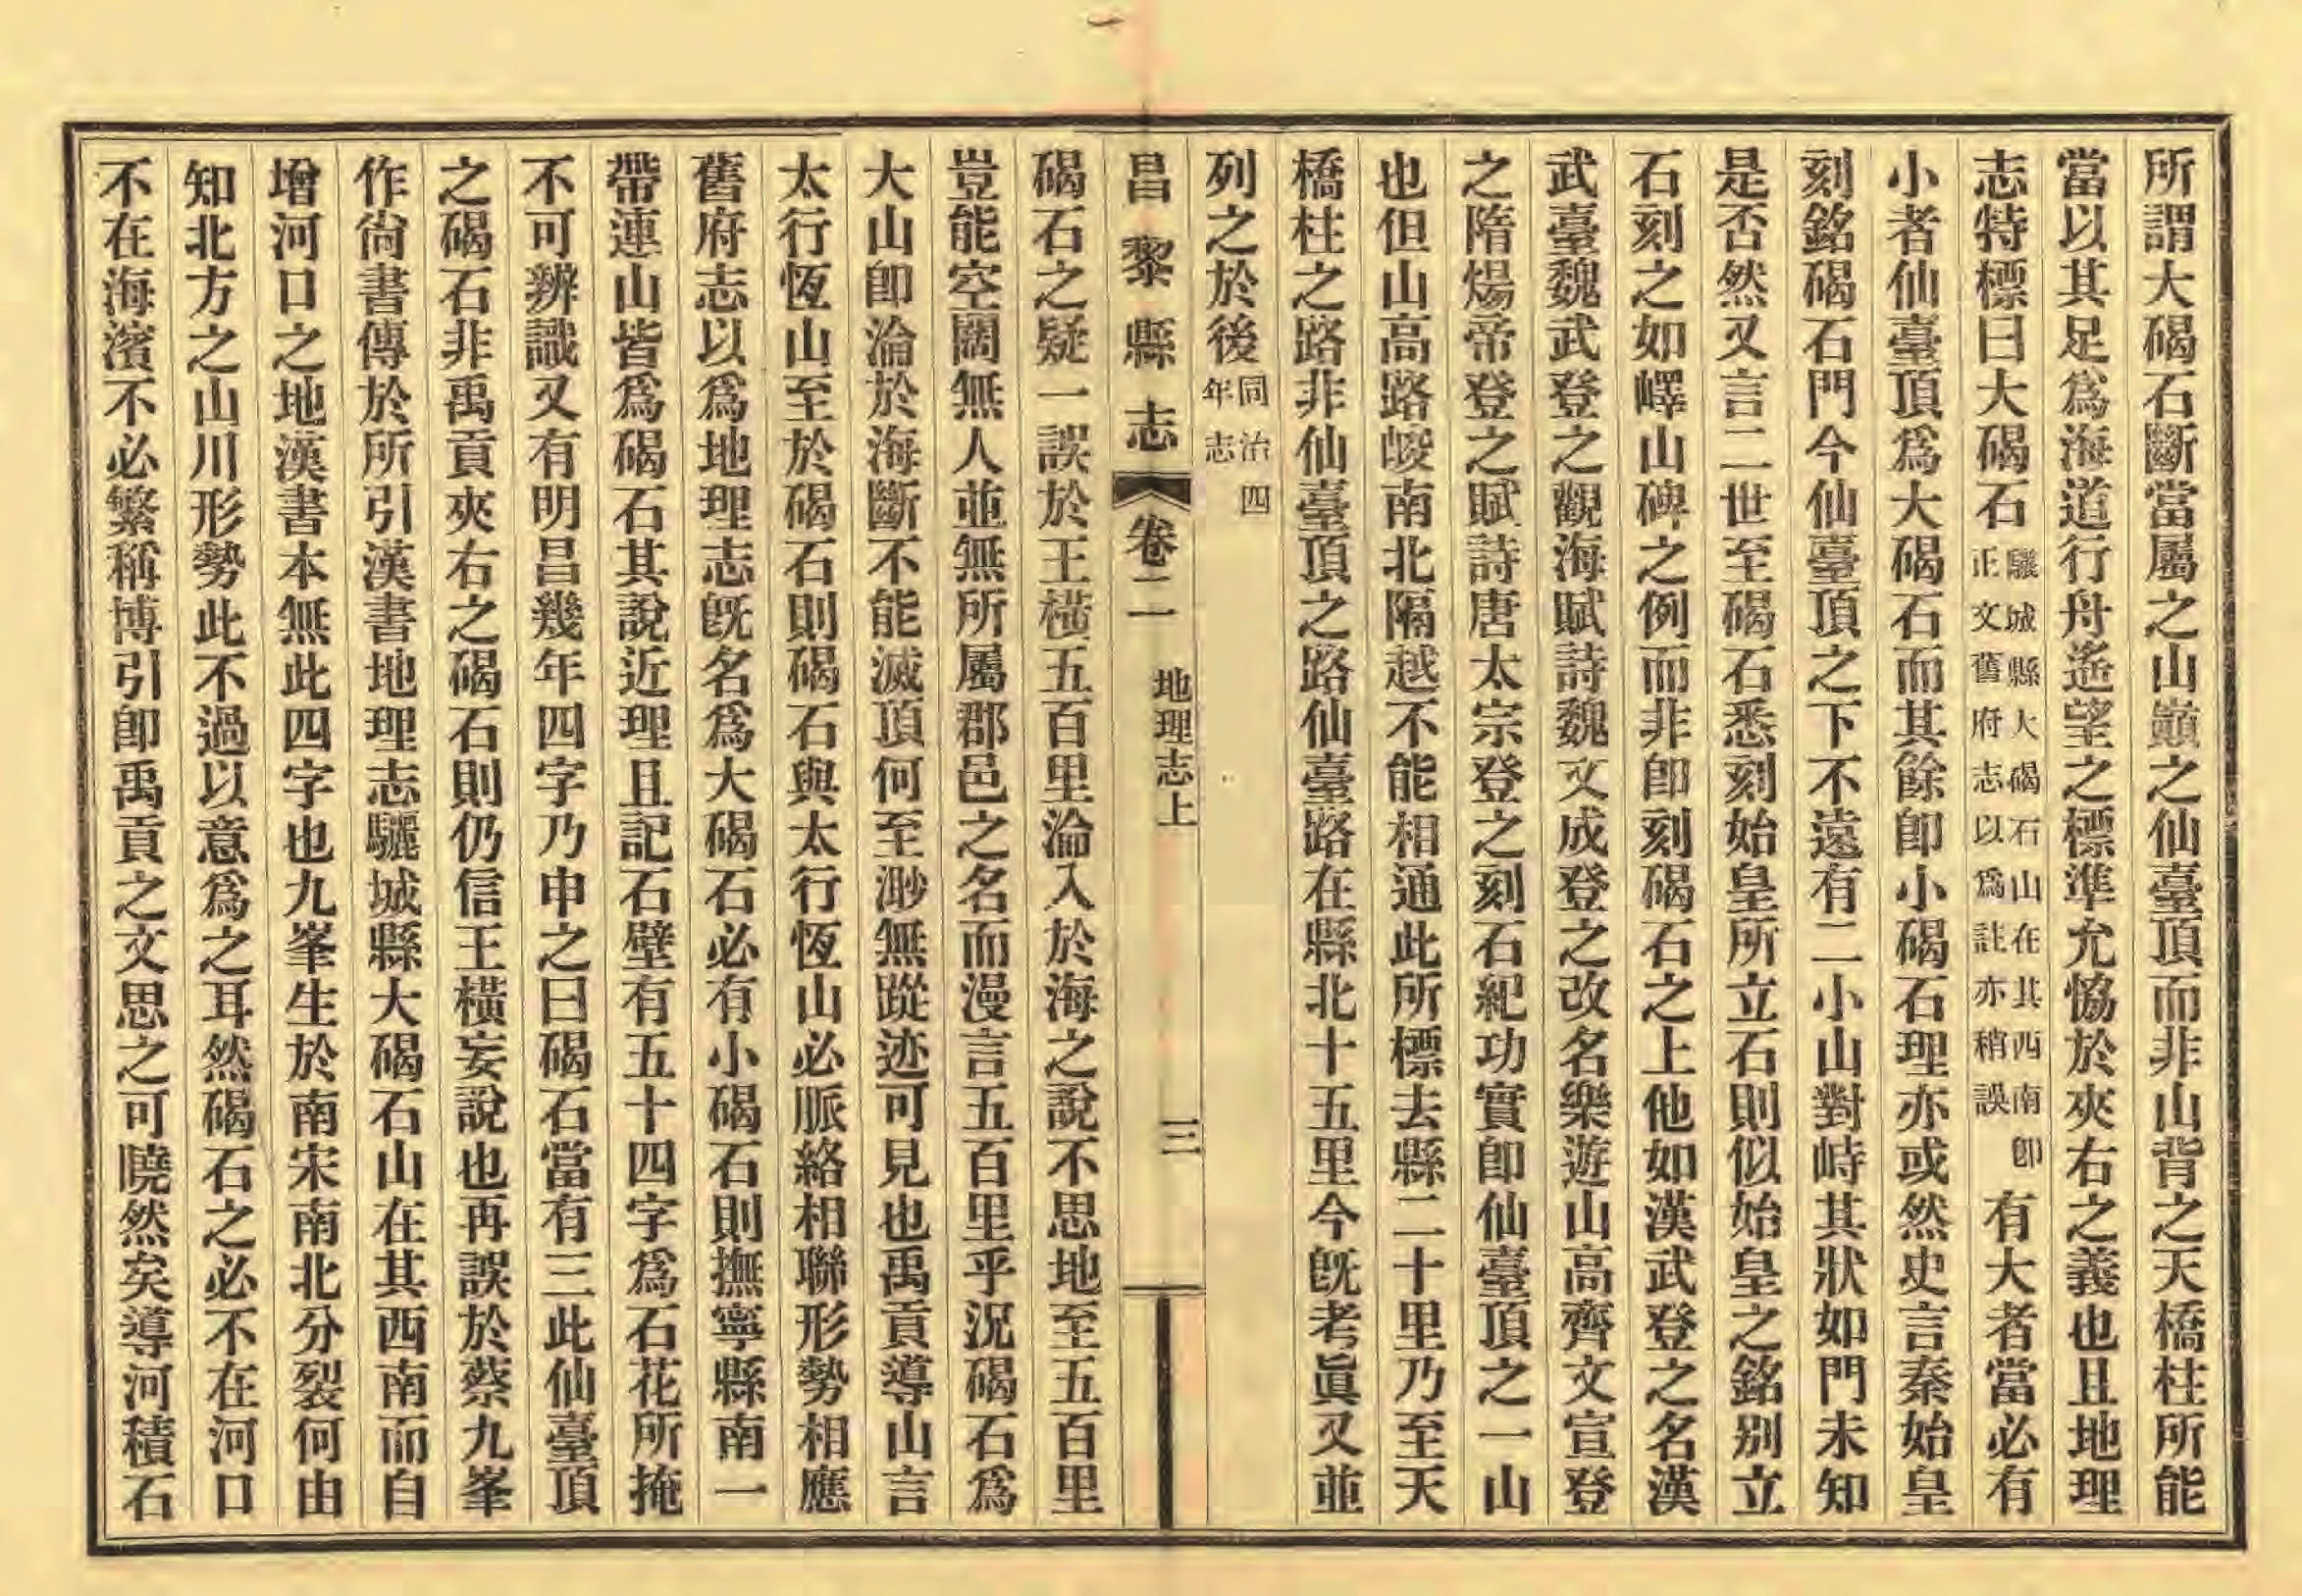 所謂大碣石斷當屬之山巔之仙臺頂而非山背之天橋柱所能
當以其足爲海道行舟遙望之標準允恊於夾右之義也且地理
志特標曰大碣石驪城縣大碣石山在其西南卽正文舊府志以爲註亦稍誤有大者當必有
小者仙臺頂爲大碣石而其餘卽小碣石理亦或然史言秦始皇
刻銘碣石門今仙臺頂之下不遠有二小山對峙其狀如門未知
是否然又言二世至碣石悉刻始皇所立石則似始皇之銘別立
石刻之如嶧山碑之例而非卽刻碣石之上他如漢武登之名漢
武臺魏武登之觀海賦詩魏文成登之改名樂遊山高齊文宣登
之隋煬帝登之賦詩唐太宗登之刻石紀功實卽仙臺頂之一山
也但山高路峻南北隔越不能相通此所標去縣二十里乃至天
橋柱之路非仙臺頂之路仙臺路在縣北十五里今旣考眞又並
列之於後同治四年志
昌黎縣志 卷二 地理志上 三
碣石之疑一誤於王橫五百里淪入於海之說不思地至五百里
豈能空闊無人並無所屬郡邑之名而漫言五百里乎況碣石爲
大山卽淪於海斷不能滅頂何至渺無蹤迹可見也禹貢導山言
太行恆山至於碣石則碣石與太行恆山必脈絡相聯形勢相應
舊府志以爲地理志旣名爲大碣石必有小碣石則撫寧縣南一
帶連山皆爲碣石其說近理且記石壁有五十四字爲石花所掩
不可辨識又有明昌幾年四字乃申之曰碣石當有三此仙臺頂
之碣石非禹貢夾右之碣石則仍信王橫妄說也再誤於蔡九峯
作尙書傳於所引漢書地理志驪城縣大碣石山在其西南而自
增河口之地漢書本無此四字也九峯生於南宋南北分裂何由
知北方之山川形勢此不過以意爲之耳然碣石之必不在河口
不在海濱不必繁稱博引卽禹貢之文思之可曉然矣導河積石